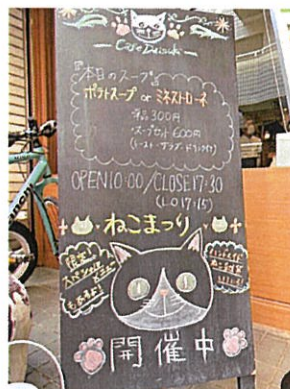 Cafe Daisuki
本日のスープ
ポテトスープ or ミネストローネ
単品 300円
スープセット 600円
(トースト・サラダ・ドリンク付)
OPEN 10:00/CLOSE 17:30
(L.O 17:15)
ねこまつり
限定
スペシャルメニュー
もあるよ!
開催中